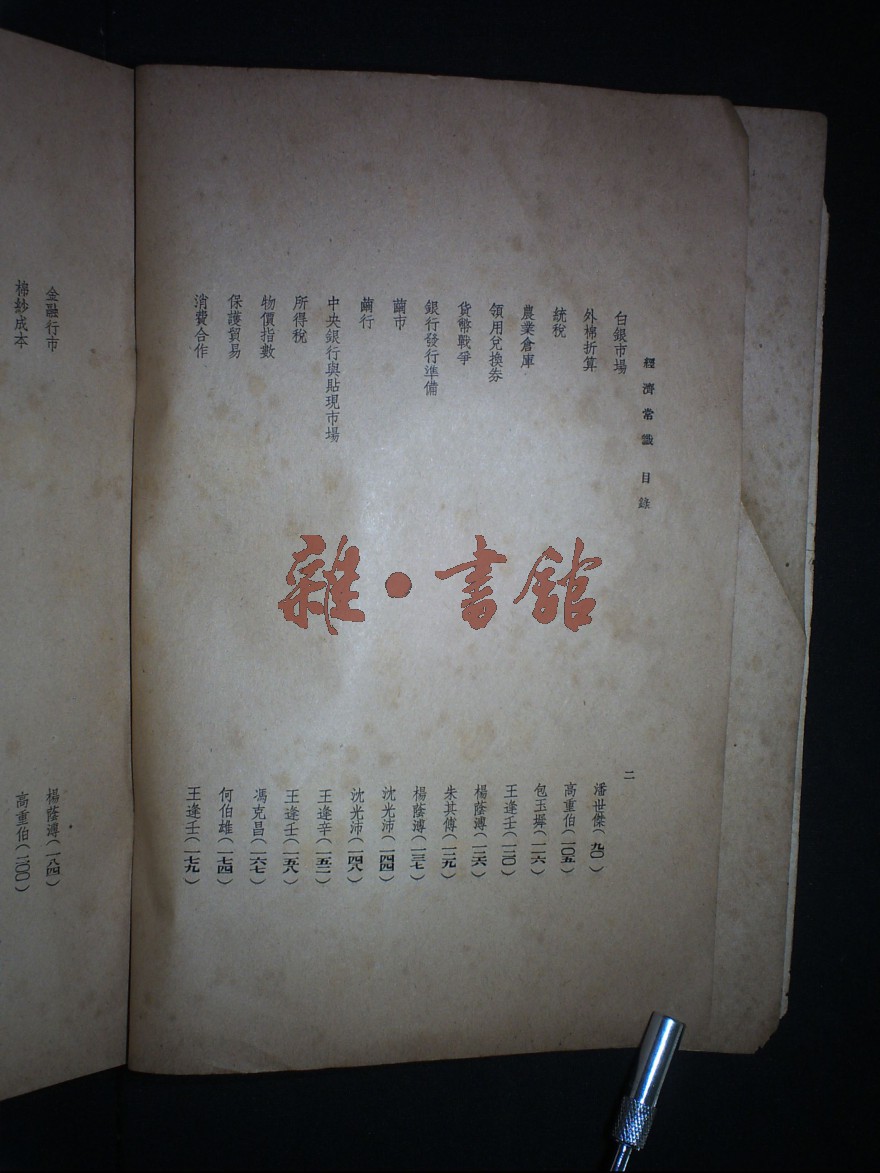 經濟常識 目錄
二
白銀市場 潘世傑(九〇)
外棉折算 高重伯(一〇五)
統稅 包玉墀(一一六)
農業倉庫 王逢壬(一二〇)
領用兌換券 楊蔭溥(一二六)
貨幣戰爭 朱其傳(一二九)
銀行發行準備 楊蔭溥(一三七)
繭市 沈光沛(一四四)
繭行 沈光沛(一四八)
中央銀行與貼現市場 王逢辛(一五二)
所得稅 王逢壬(一五八)
物價指數 馮克昌(一六七)
保護貿易 何伯雄(一七四)
消費合作 王逢壬(一七九)
金融行市 楊蔭溥(一八四)
棉紗成本 高重伯(二〇〇)
雜·書館